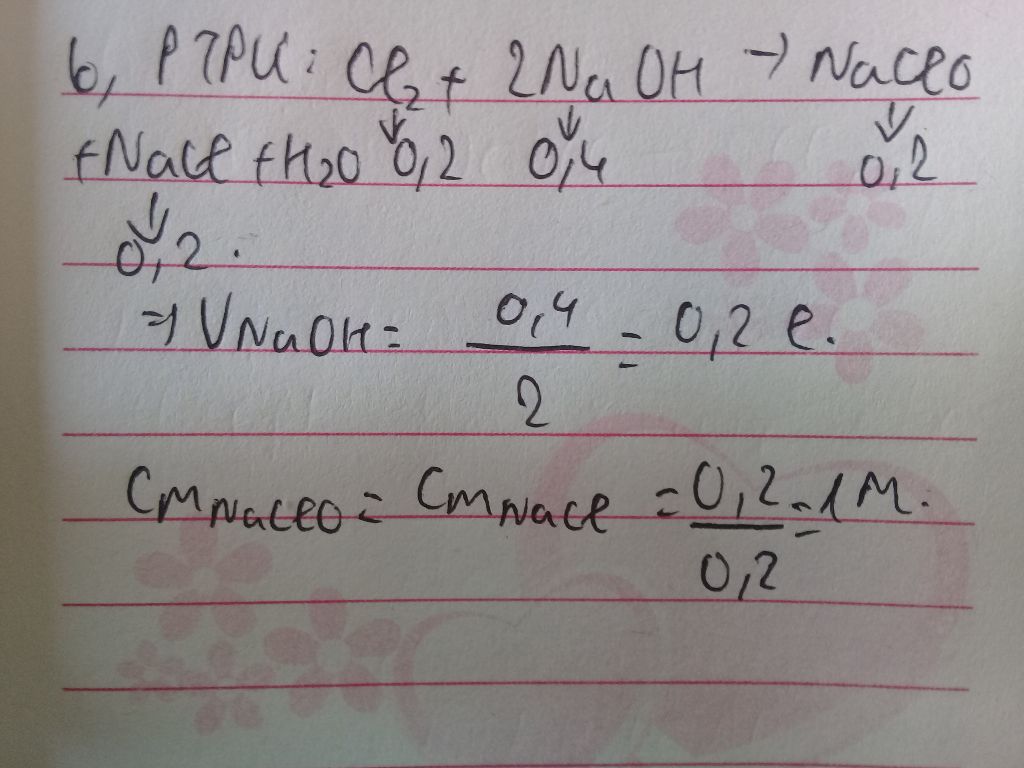 b, PTPU: Cl₂ + 2NaOH → NaClO
+NaCl + H₂O 0,2 0,4 0,2
0,2.
=> VNaOH = 0,4 / 2 = 0,2 l.
CMNaClO = CMNaCl = 0,2 / 0,2 = 1M.